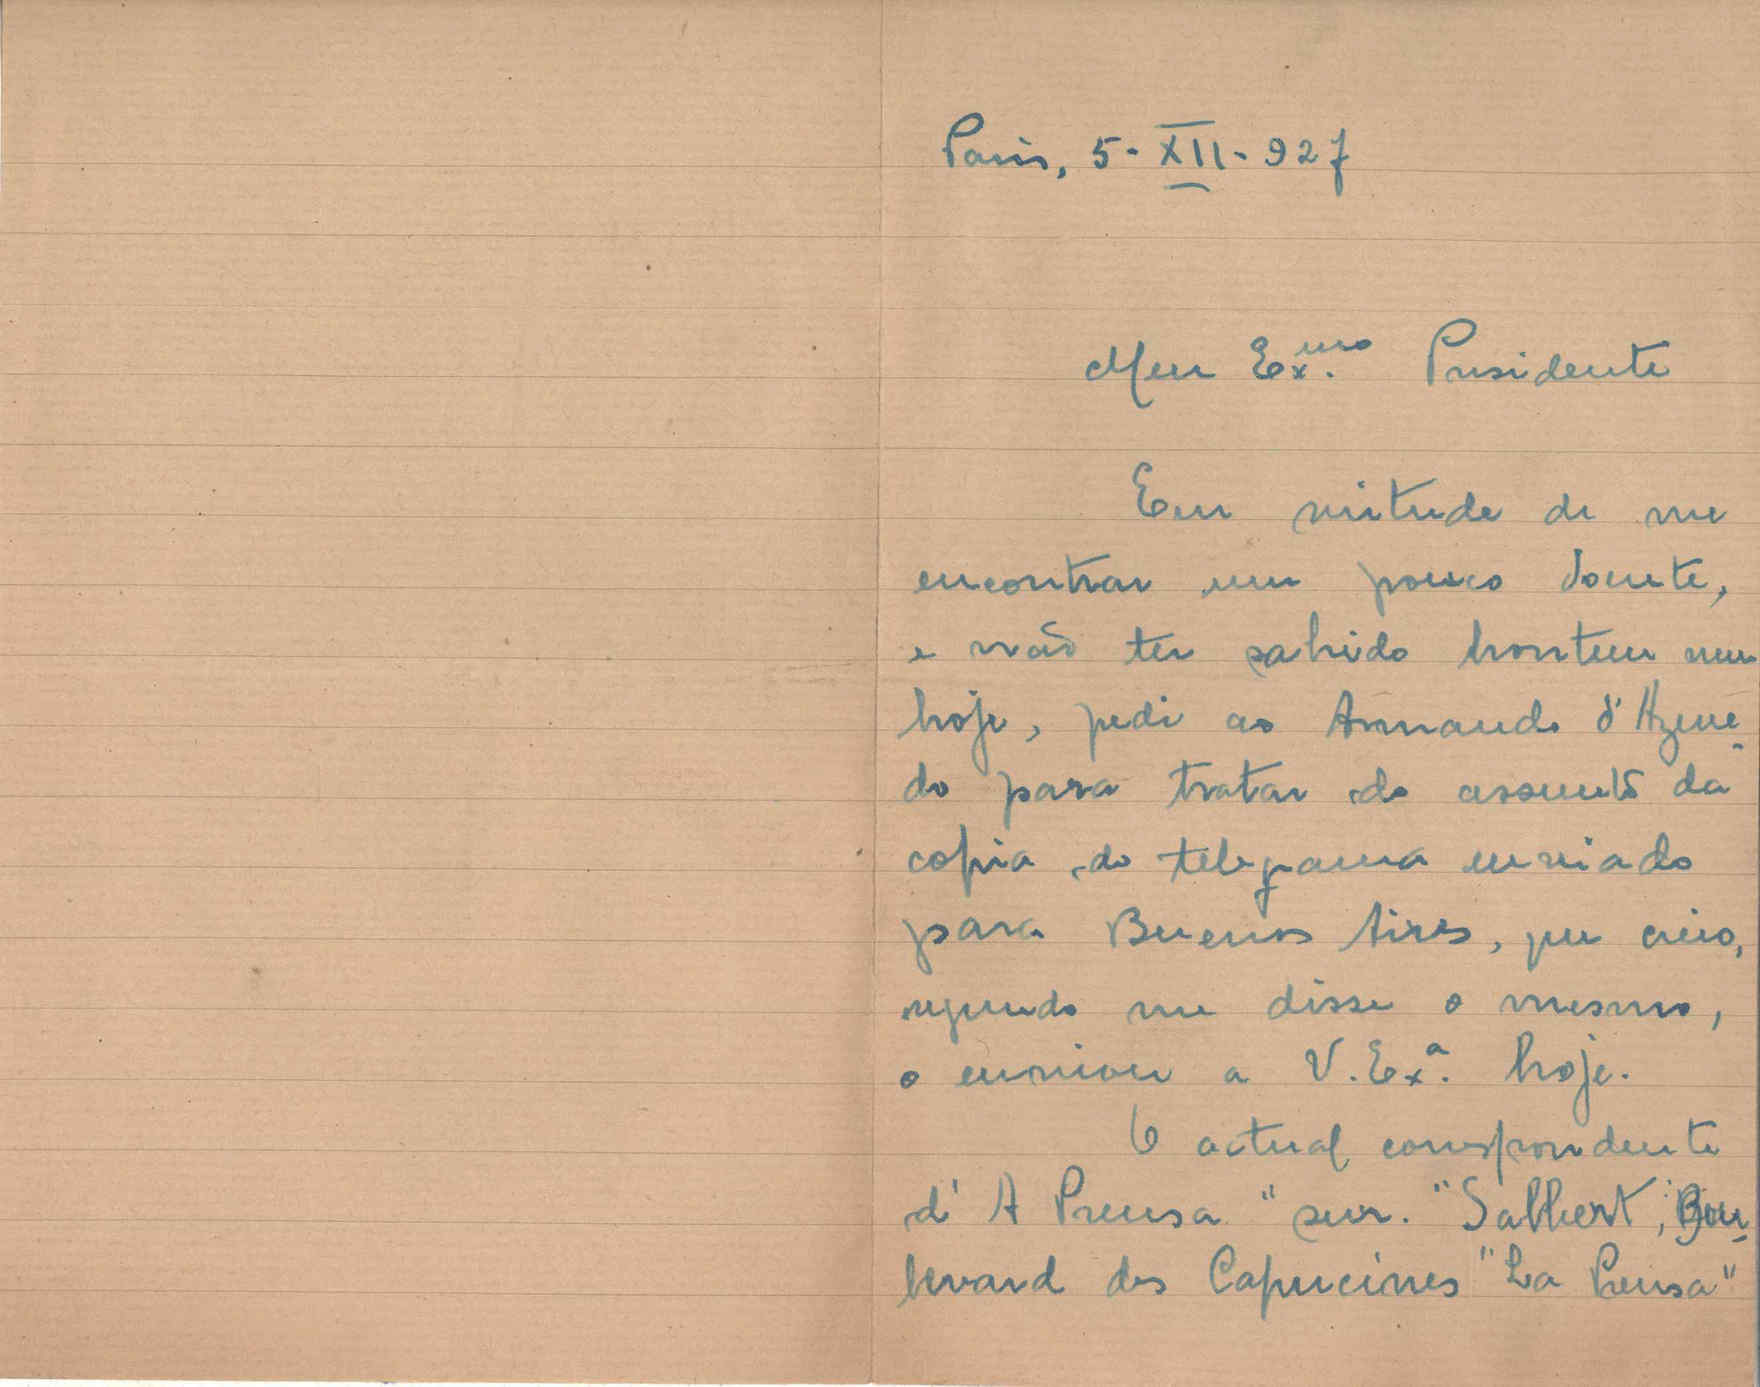 Paris, 5-XII-927
Meu Ex.mo Presidente
Em virtude de me
encontrar um pouco doente,
e não ter sahido hontem nem
hoje, pedi ao Armando d'Azeve-
do para tratar do assunto da
copia do telegrama enviado
para Buenos Aires, que creio,
segundo me disse o mesmo,
o enviou a V. Ex.a hoje.
O actual correspondente
d'A Prensa "snr. "Salbert", Bou-
levard des Capucines "La Prensa"